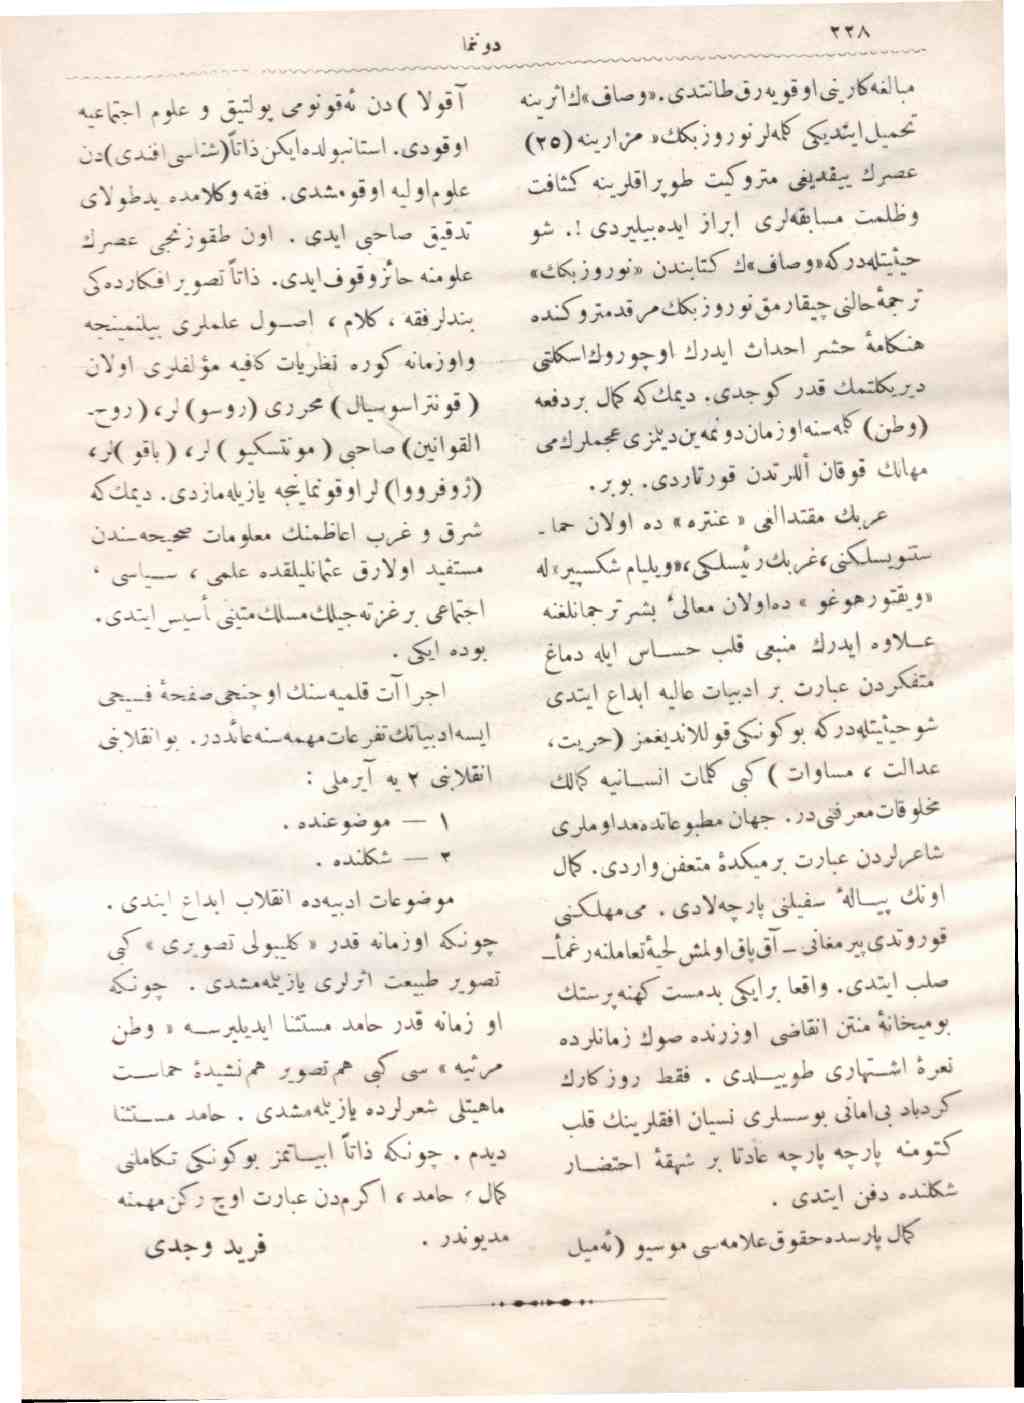 ٢٣٨
دوننما
مبالغه‌كارینی اوقویه‌رق طانتدی. «وصاف»ك اثرینه
تحمیل ایتدیكی كلمه‌لر نوروز بكك» مزارینه (٢٥)
عصرك ییقدیغی متروكیت طوپراقلرینه كثافت
وظلمت مسابقه‌لری ابراز ایده‌بیلیردی !. شو
حیثیتله‌دركه «وصاف»ك كتابندن «نوروز بكك»
ترجمۀ حالنی چیقارمق نوروز بكك مرقد متروكنده
هنكامۀ حشر احداث ایدرك اوچوروك اسكلتی
دیریلكتمك قدر كوجدی. دیمك كه كمال بر دفعه
(وطن) كلمه‌سنه اوزمان دونمه‌ین دیلمزی عجملرك می
مهانك قوقان أللرتدن قورتاردی. بو بر.
عربك مقتداالغی «عنتره» ده اولان حما-
ستنویسلكنی، غربك رئیسلكی، «ویلیام شكسپیر» له
«ویقتور هوغو» ده اولان معالیٔ بشر ترجمانلغنه
عـلاوه ایدرك منبعی قلب حسـاس ایله دماغ
متفكردن عبارت بر ادبیات عالیه ابداع ایتدی
شو حیثیتله‌دركه بوكونكی قوللاندیغمز (حریت،
عدالت ، مساوات ) كبی كلمات انسـانیه كمالك
مخلوقات معرفتی‌در. جهان مطبوعاتده مداوملری
شاعرلردن عبارت بر میكدۀ متعفن واردی. كمال
اونك پیـالۀ سفیلنی پارچه‌لادی . می مهلكنی
قوروتدی پیر مغانی ـ آق پاق اولمش لحیۀ تعاملنه رغماً ـ
صلب ایتدی. واقعا بر ایكی بدمست كهنه پرستك
بو میخانۀ منتن انقاضی اوزرنده صوك زمانلرده
نعرۀ اشـتهاری طویـلدی . فقط روزكارك
كردباد بی‌امانی بو سسلری نسیان افقلرینك قلب
كتومنه پارچه پارچه عادتا بر شهقۀ احتضـار
شكلنده دفن ایتدی .
كمال پارسده حقوق علامه‌سی موسیو (ئه‌میل
آقولا )دن ئه‌قونومی پولتیق و علوم اجتماعیه
اوقودی. استانبولده ایكن ذاتاً (شناسی افندی)دن
علوم اولیه اوقومشدی. فقه وكلامده ید طولای
تدقیق صاحبی ایدی . اون طقوزنجی عصرك
علومنه حائز وقوف ایدی. ذاتاً تصویر افكارده‌كی
بندلر فقه ، كلام ، اصـول علملری بیلنمینجه
واوزمانه كوره نظریات كافیه مؤلفلری اولان
( قونتراسوسیال ) محرری (روسو) لر، (روح-
القوانین) صاحبی ( مونتسكیو ) لر، ( باقو )لر،
(ژوفرووا) لر اوقونماینجه یازیله‌مازدی. دیمك كه
شرق و غرب اعاظمنك معلومات صحیحه‌سندن
مستفید اولارق عثمانلیلقده علمی ، سـیاسی ،
اجتماعی بر غزته‌جیلك مسلك متینی تأسیس ایتدی.
بوده ایكی .
اجراآت قلمیه‌سنك اوچنجی صفحۀ فسیحی
ایسه ادبیاتك تفرعات مهمه‌سنه عائددر. بو انقلابنی
انقلابنی ٢ یه آیرملی :
١ — موضوعنده .
٣ — شكلنده .
موضوعات ادبیه‌ده انقلاب ابداع ایتدی .
چونكه اوزمانه قدر « كلیبولی تصویری » كبی
تصویر طبیعت اثرلری یازیلمه‌مشدی . چونكه
او زمانه قدر حامد مستثنا ایدیلیرسـه « وطن
مرثیه » سی كبی هم تصویر هم نشیدۀ حماسـت
ماهیتلی شعرلرده یازیلمه‌مشدی . حامد مسـتثنا
دیدم . چونكه ذاتاً ابیـاتمز بوكونكی تكاملنی
كمال ، حامد ، اكرم‌دن عبارت اوچ ركن مهمنه
مدیوندر .
فرید وجدی